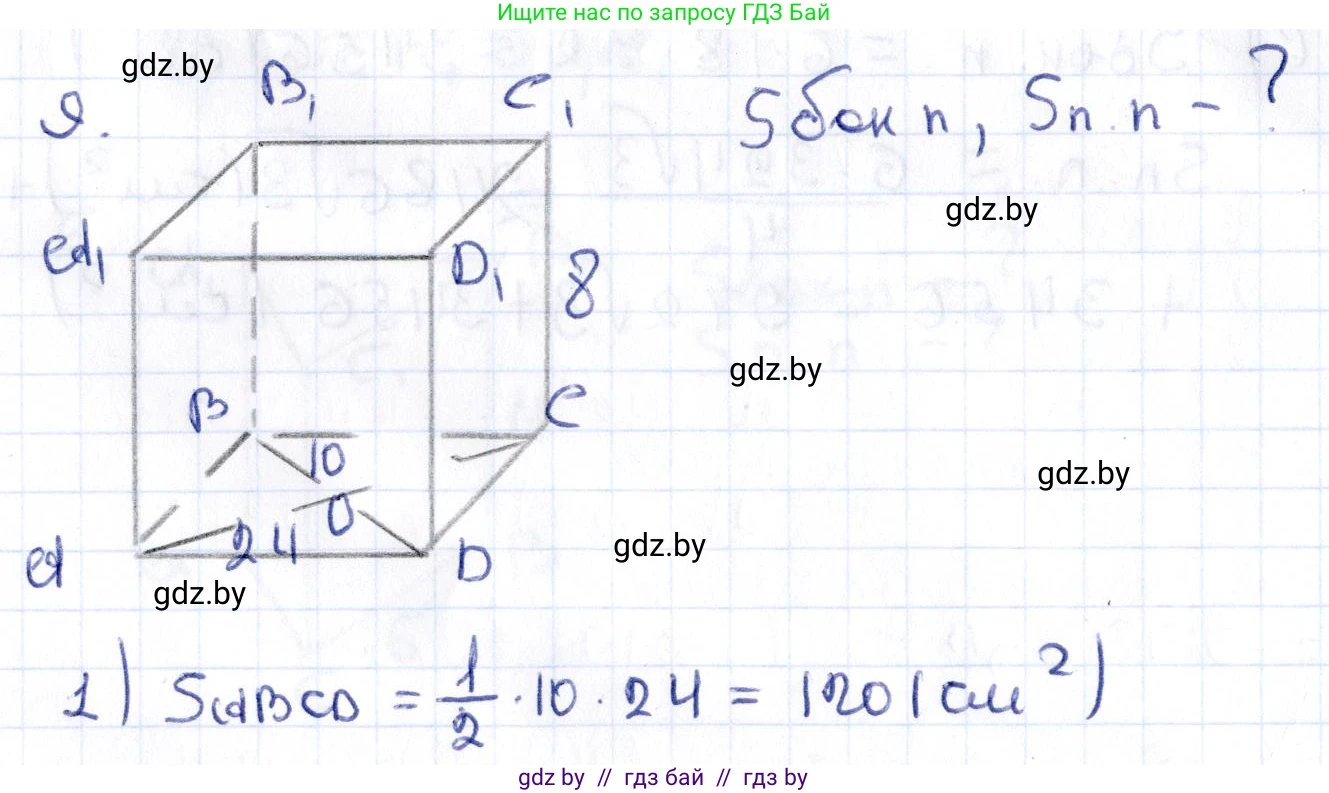 Ищите нас по запросу ГДЗ Бай
gdz.by
9.
B₁
C₁
Sбок п, Sп.п - ?
gdz.by
A₁
D₁
8
gdz.by
B
C
10
gdz.by
O
24
gdz.by
A
D
gdz.by
1) SABCD = 1/2 · 10 · 24 = 120 (см²)
gdz by // гдз бай // гдз by